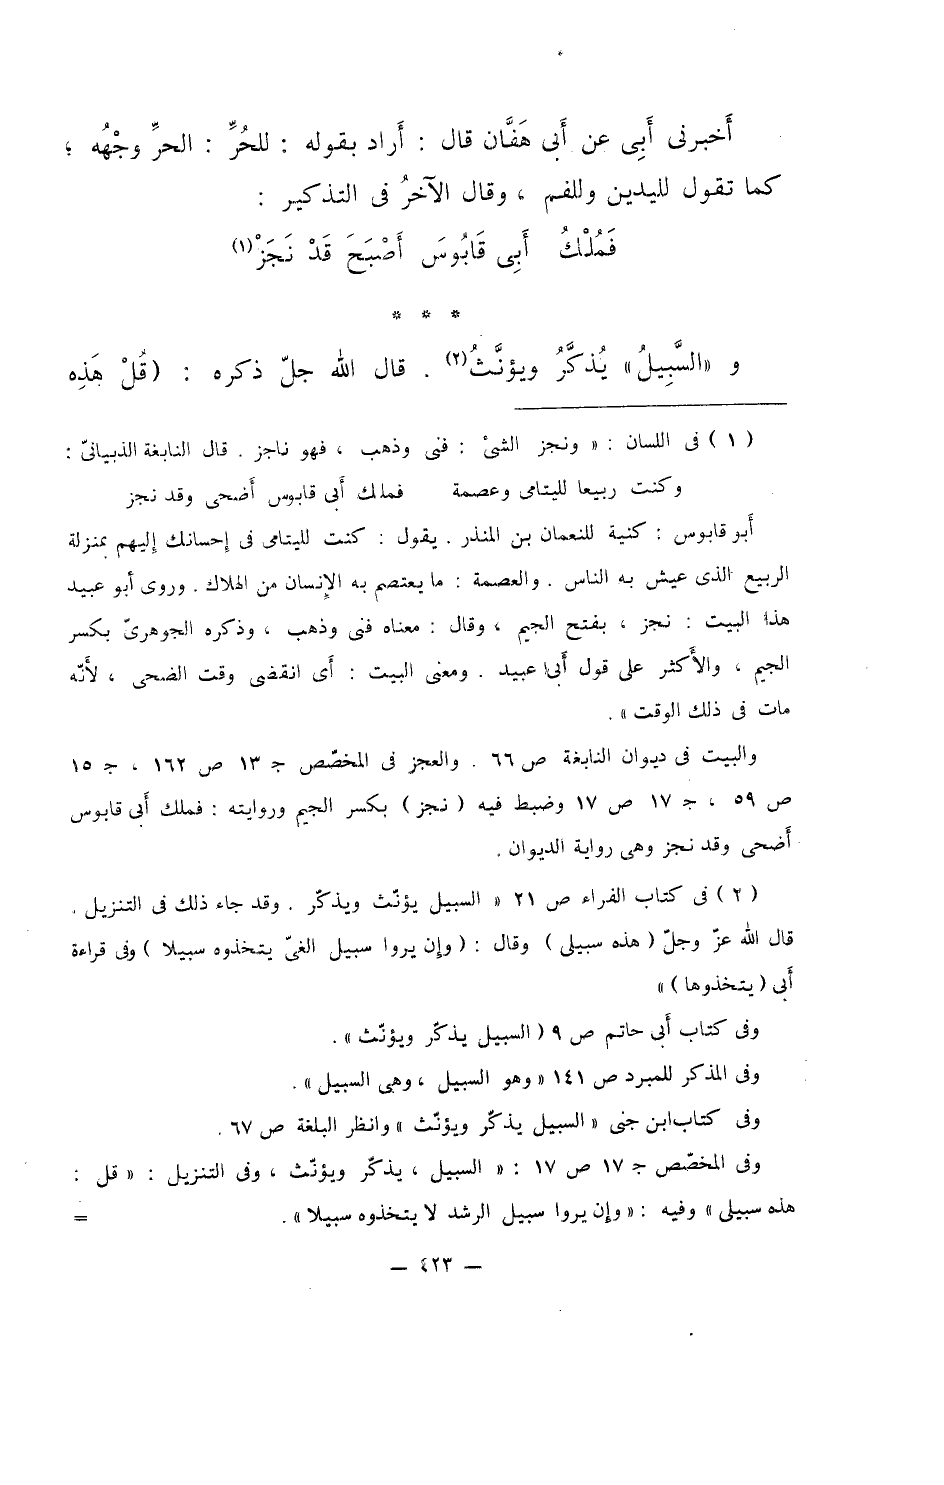 أَخبرنى أَبِى عن أَبى هَفَّان قال : أَراد بقوله : للحُرِّ : الحرِّ وجْهُه ؛
كما تقول لليدين وللفم ، وقال الآخرُ فى التذكير :
فَمُلْكُ أَبِى قَابُوسَ أَصْبَحَ قَدْ نَجَزْ(١)
* * *
و «السَّبِيلُ» يُذكَّرُ ويؤنَّثُ(٢) . قال الله جلّ ذكره : (قُلْ هَذِه
(١) فى اللسان : « ونجز الشىْ : فنى وذهب ، فهو ناجز . قال النابغة الذبيانىّ :
وكنت ربيعا لليتامى وعصمة فملك أَبى قابوس أَضحى وقد نجز
أَبو قابوس : كنية للنعمان بن المنذر . يقول : كنت لليتامى فى إحسانك إليهم بمنزلة
الربيع الذى عيش به الناس . والعصمة : ما يعتصم به الإنسان من الهلاك . وروى أبو عبيد
هذا البيت : نجز ، بفتح الجيم ، وقال : معناه فنى وذهب ، وذكره الجوهرىّ بكسر
الجيم ، والأَكثر على قول أَبى عبيد . ومعنى البيت : أى انقضى وقت الضحى ، لأَنّه
مات فى ذلك الوقت » .
والبيت فى ديوان النابغة ص ٦٦ . والعجز فى المخصّص جـ ١٣ ص ١٦٢ ، جـ ١٥
ص ٥٩ ، جـ ١٧ ص ١٧ وضبط فيه ( نجز ) بكسر الجيم وروايته : فملك أَبى قابوس
أَضحى وقد نجز وهى رواية الديوان .
(٢) فى كتاب الفراء ص ٢١ « السبيل يؤنّث ويذكّر . وقد جاء ذلك فى التنزيل .
قال الله عزّ وجلّ ( هذه سبيلى ) وقال : ( وإن يروا سبيل الغىّ يتخذوه سبيلا ) وفى قراءة
أَبى ( يتخذوها ) »
وفى كتاب أَبى حاتم ص ٩ ( السبيل يذكّر ويؤنّث » .
وفى المذكر للمبرد ص ١٤١ « وهو السبيل ، وهى السبيل » .
وفى كتاب ابن جنى « السبيل يذكّر ويؤنّث » وانظر البلغة ص ٦٧ .
وفى المخصّص جـ ١٧ ص ١٧ : « السبيل ، يذكّر ويؤنّث ، وفى التنزيل : « قل :
هذه سبيلى » وفيه : « وإن يروا سبيل الرشد لا يتخذوه سبيلا » . =
— ٤٢٣ —